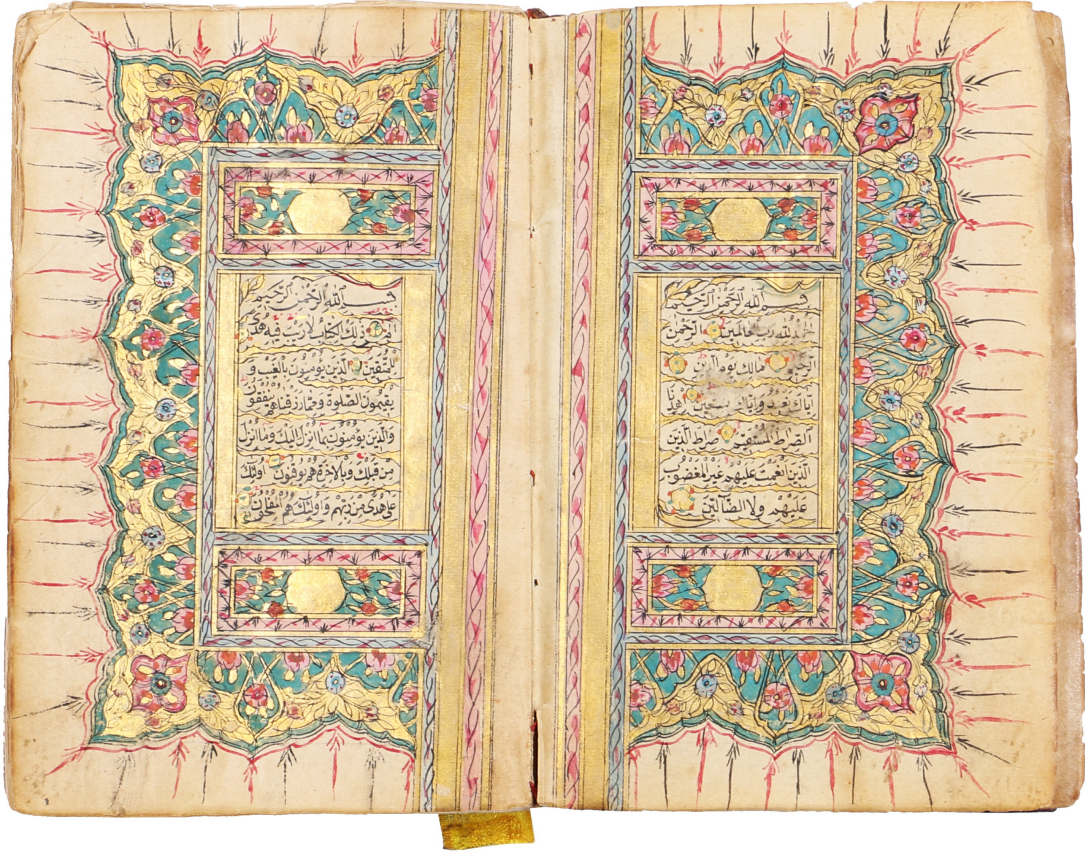 بسم الله الرحمن الرحيم
الحمد لله رب العالمين الرحمن
الرحيم مالك يوم الدين
اياك نعبد واياك نستعين اهدنا
الصراط المستقيم صراط الذين
الذين انعمت عليهم غير المغضوب
عليهم ولا الضالين
بسم الله الرحمن الرحيم
الم ذلك الكتاب لا ريب فيه هدى
للمتقين الذين يؤمنون بالغيب و
يقيمون الصلوة ومما رزقناهم ينفقون
والذين يؤمنون بما انزل اليك وما انزل
من قبلك وبالاخرة هم يوقنون اولئك
على هدى من ربهم واولئك هم المفلحون